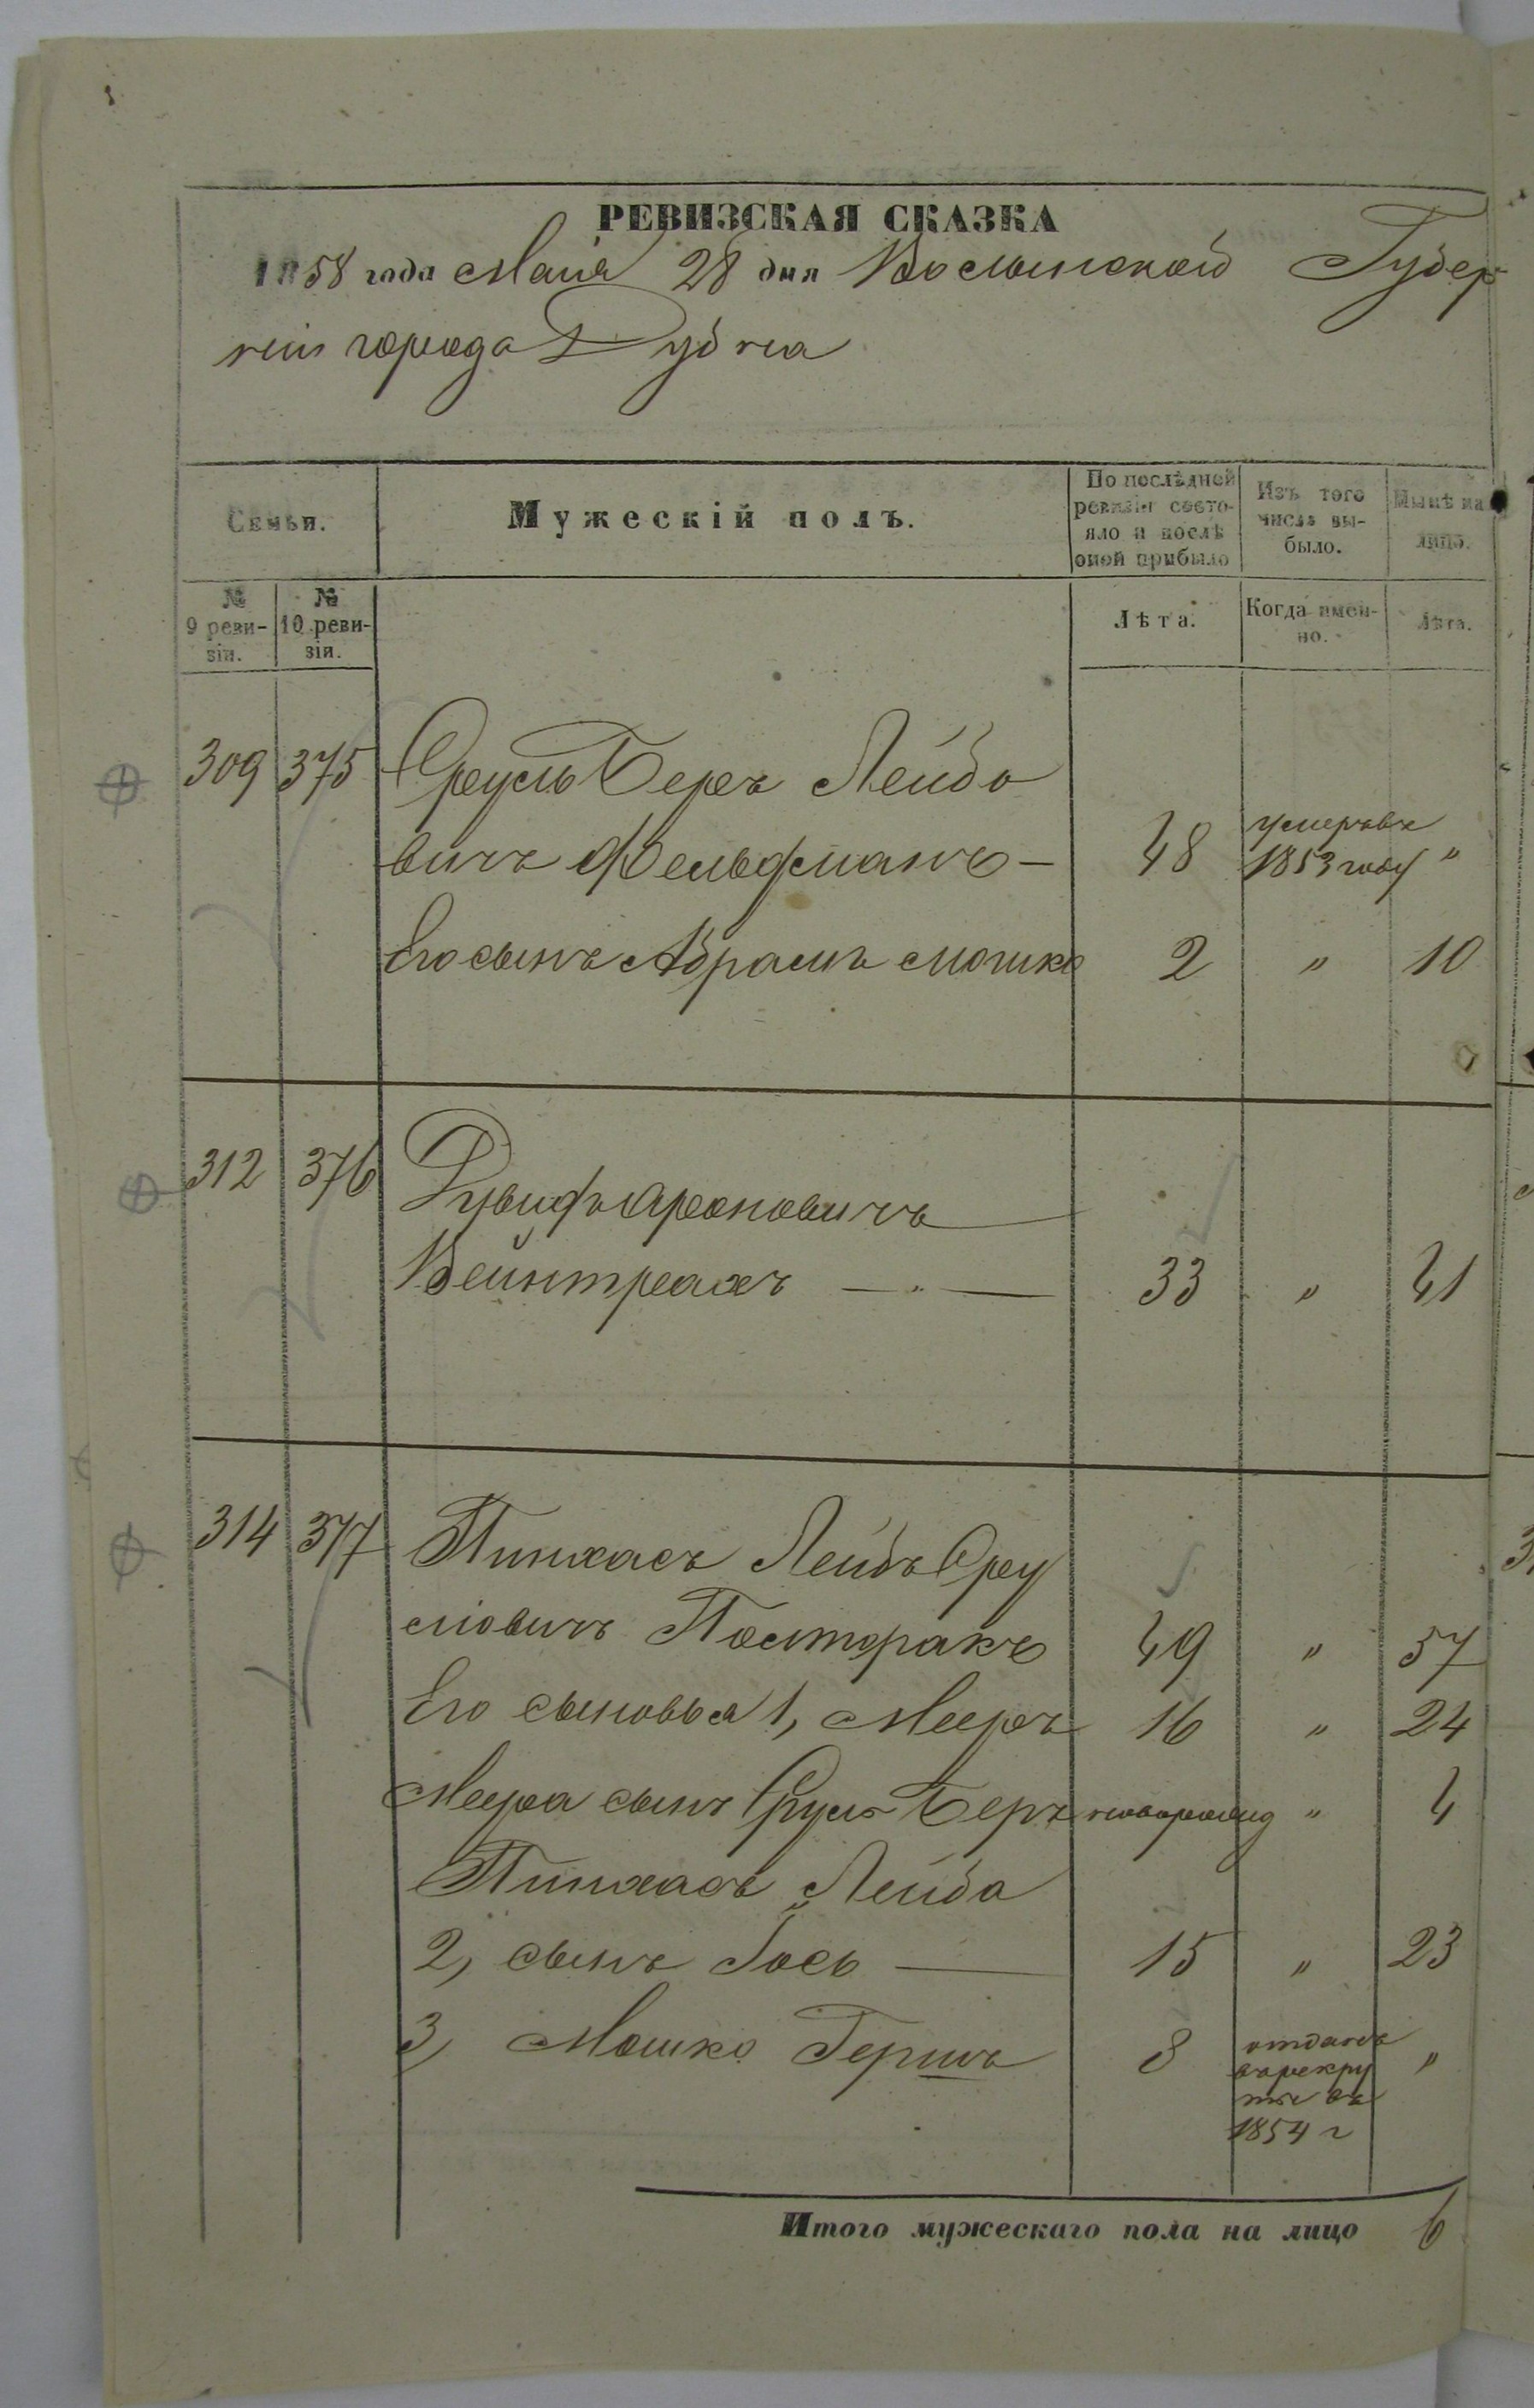 РЕВИЗСКАЯ СКАЗКА
1858 года Маія 28 дня Волынской Губер
ніи города Дубна
Семьи.
Мужескій полъ.
По послѣдней ревизіи состо-
яло и послѣ
оной прибыло
Изъ того
числа вы-
было.
Нынѣ на
лицо.
№
9 реви-
зіи.
№
10 реви-
зіи.
Лѣта.
Когда имен-
но.
Лѣта.
309 375 Сруль Беръ Лейбо
вичъ Фельдманъ — 48 умеръ въ 1853 году "
Его сынъ Абрамъ Мошко 2 " 10
312 376 Дувидъ Ароновичъ
Вейнтрахъ — 33 " 41
314 377 Пинхасъ Лейбъ Сру
ліовичъ Посторакъ 49 " 57
Его сыновья 1, Мееръ 16 " 24
Меера сынъ Сруль Беръ новорожд " 4
Пинхасъ Лейба
2, сынъ Іось — 15 " 23
3, Мошко Гершъ 8 отданъ "
въ рекру
ты въ
1854 г
Итого мужескаго пола на лицо 6